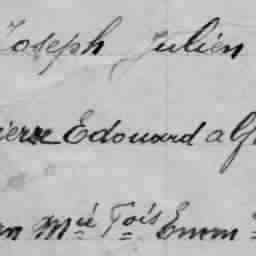 Joseph Julien
ierre Edouard a G
n Mie Fois Emm